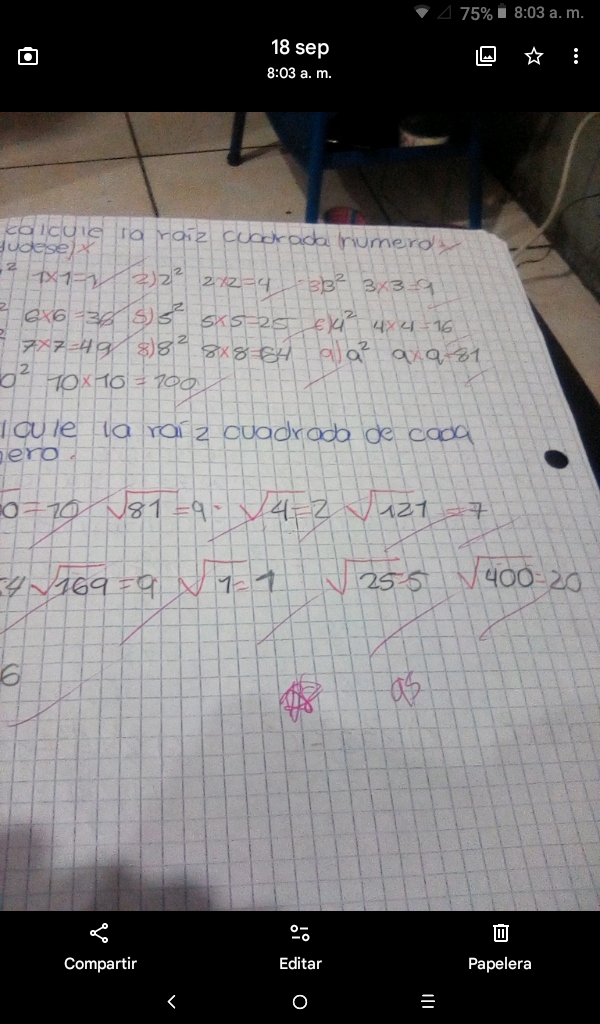 75% 8:03 a. m.
18 sep
8:03 a. m.
calcule la raíz cuadrada numero
yudese)
² 1x1=1 2)2² 2x2=4 3)3² 3x3=9
² 6x6=36 5)5² 5x5=25 6)4² 4x4=16
² 7x7=49 8)8² 8x8=64 9)9² 9x9=81
0² 10x10=100
lcule la raíz cuadrada de cada
ero.
0=10 √81=9 √4=2 √121=7
64 √169=9 √1=1 √25=5 √400=20
6
95
Compartir Editar Papelera